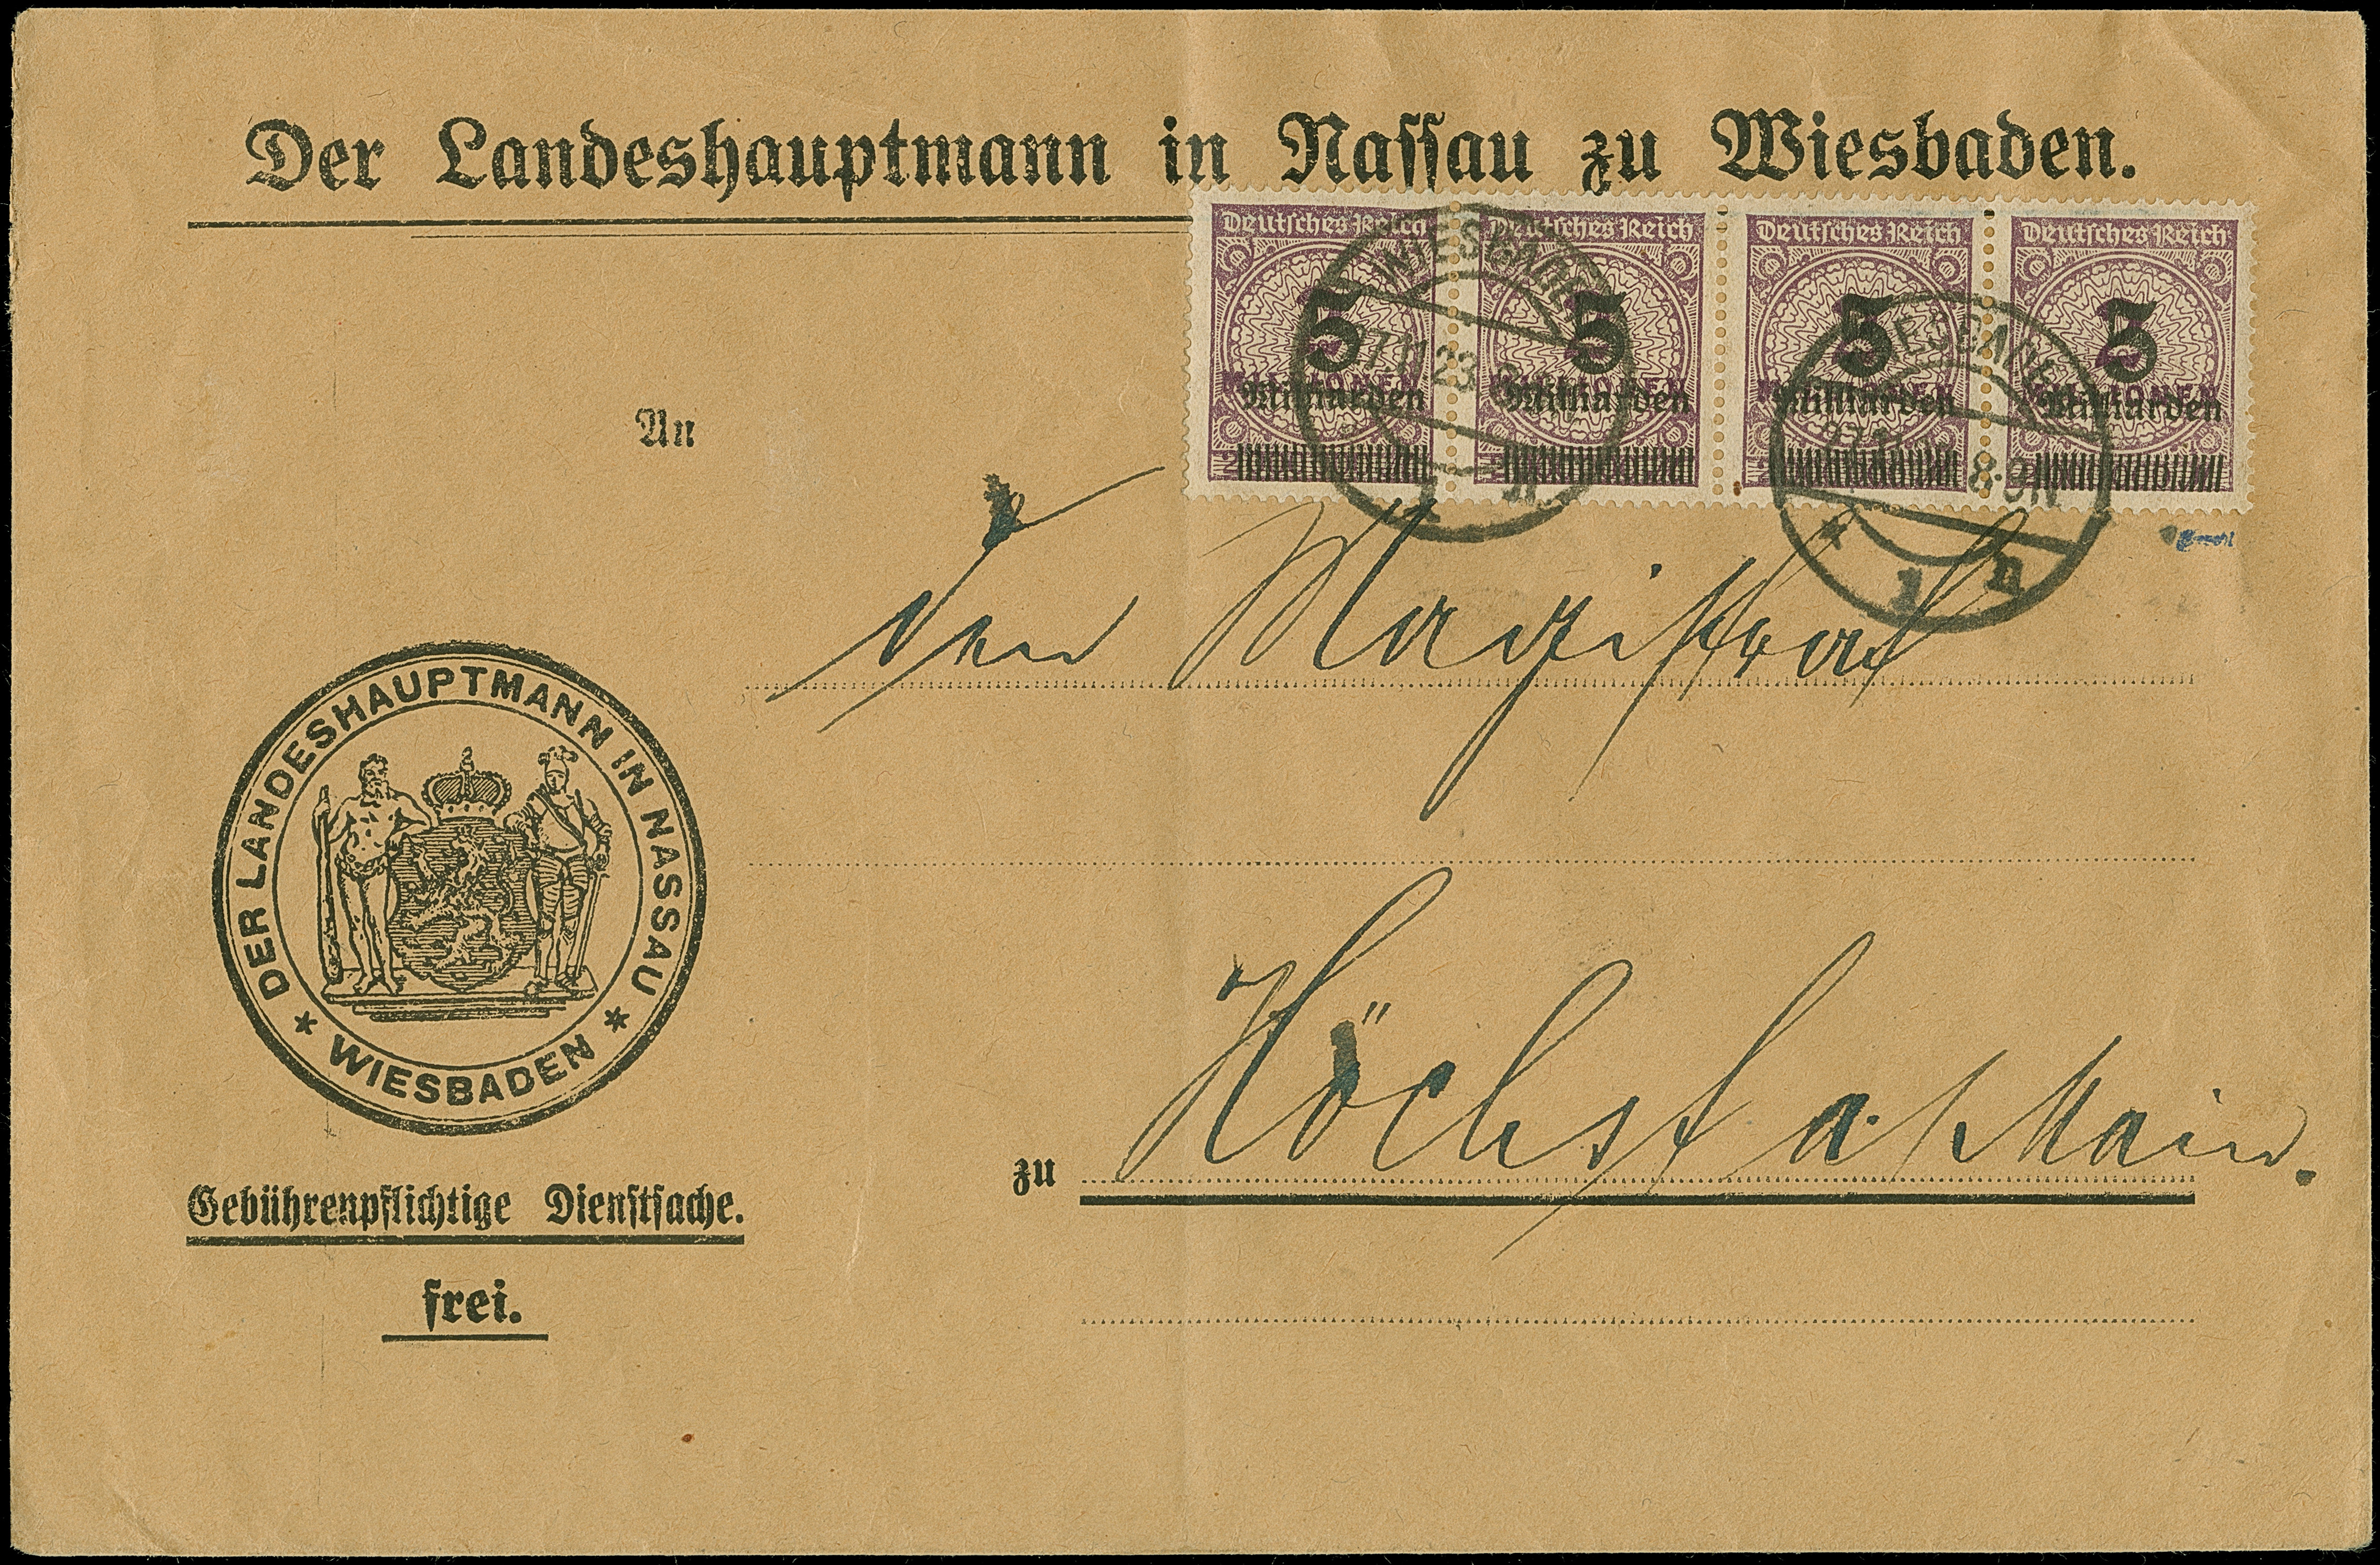 Der Landeshauptmann in Nassau zu Wiesbaden.
Deutsches Reich Deutsches Reich Deutsches Reich Deutsches Reich
5 5 5 5
Milliarden Milliarden Milliarden Milliarden
WIESBADEN
17.11.23
1 n
WIESBADEN
8-9N
* 1 n
An
den Magistrat
DER LANDESHAUPTMANN IN NASSAU
* WIESBADEN *
zu Höchst a/Main.
Gebührenpflichtige Dienstsache.
frei.